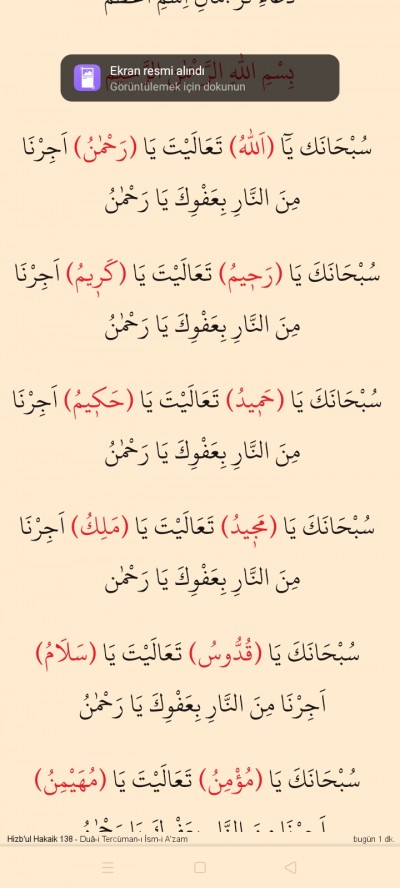 دُعَاءِ تَرْجُمَانِ اِسْمِ اَعْظَمْ
بِسْمِ اللهِ الرَّحْمٰنِ الرَّحِيمِ
Ekran resmi alındı
Görüntülemek için dokunun
سُبْحَانَكَ يَٓا (اَللهُ) تَعَالَيْتَ يَا (رَحْمٰنُ) اَجِرْنَا
مِنَ النَّارِ بِعَفْوِكَ يَا رَحْمٰنُ
سُبْحَانَكَ يَا (رَحِيمُ) تَعَالَيْتَ يَا (كَرِيمُ) اَجِرْنَا
مِنَ النَّارِ بِعَفْوِكَ يَا رَحْمٰنُ
سُبْحَانَكَ يَا (حَمِيدُ) تَعَالَيْتَ يَا (حَكِيمُ) اَجِرْنَا
مِنَ النَّارِ بِعَفْوِكَ يَا رَحْمٰنُ
سُبْحَانَكَ يَا (مَجِيدُ) تَعَالَيْتَ يَا (مَلِكُ) اَجِرْنَا
مِنَ النَّارِ بِعَفْوِكَ يَا رَحْمٰن
سُبْحَانَكَ يَا (قُدُّوسُ) تَعَالَيْتَ يَا (سَلَامُ)
اَجِرْنَا مِنَ النَّارِ بِعَفْوِكَ يَا رَحْمٰنُ
سُبْحَانَكَ يَا (مُؤْمِنُ) تَعَالَيْتَ يَا (مُهَيْمِنُ)
اَجِرْنَا مِنَ النَّارِ بِعَفْوِكَ يَا رَحْمٰنُ
Hizb'ul Hakaik 138 - Duâ-i Tercüman-ı İsm-i A'zam
bugün 1 dk.